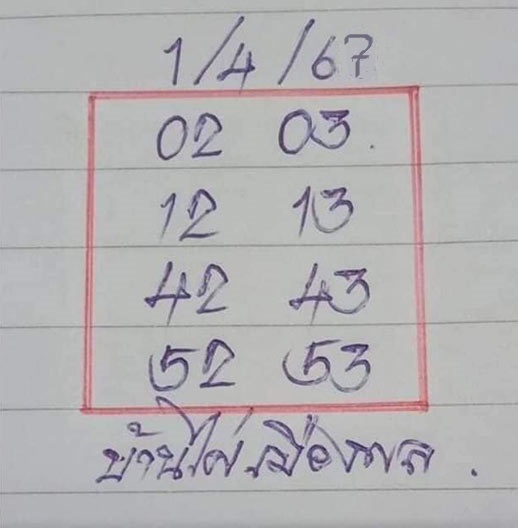 1/4/67
02 03.
12 13
42 43
52 53
บ้านไผ่เมืองพล.